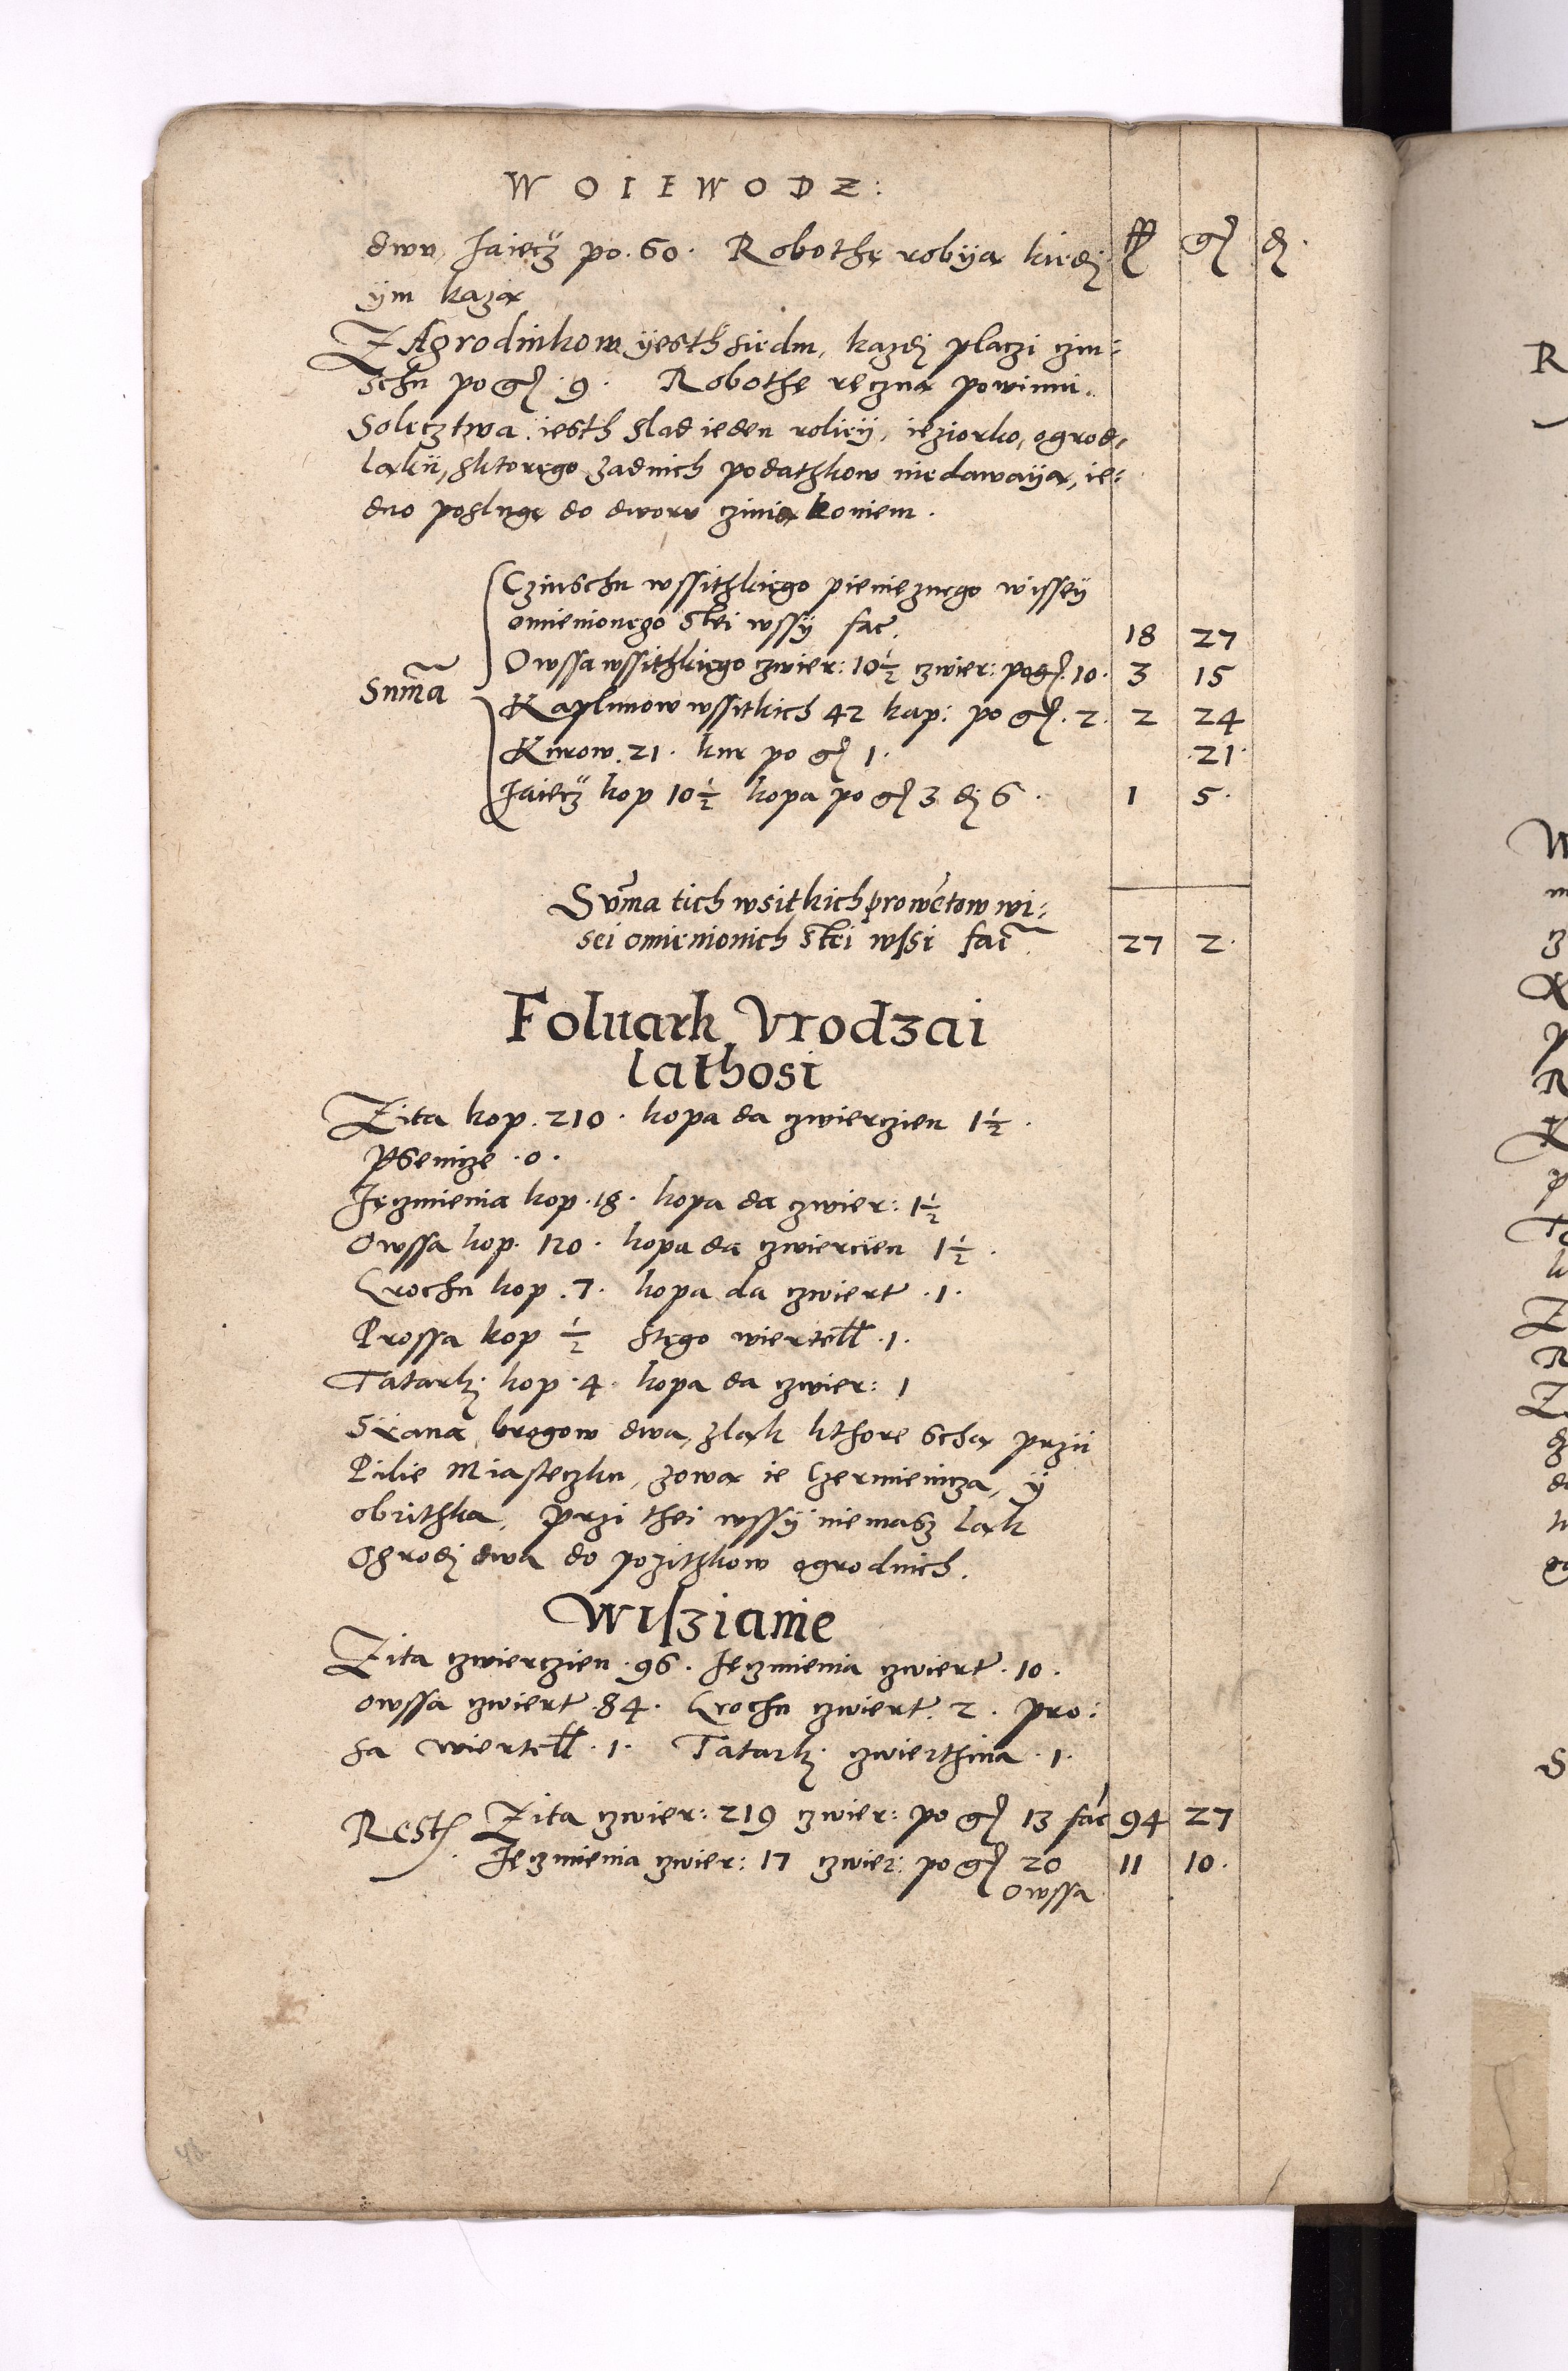 WOIEWODZ:
dwu, Jaiecz po. 60. Robothę robyą kiedj fl gr d.
ym każą
ZAgrodnikow yesth siedm, kazdj placzi czin:
schu po gr 9. Robothę ręczną powinni.
Solecztwa iesth slad ieden roliey, ieziorko, ogrod,
lakii, sktorego zadnich podathkow niedawaya, ie:
dno poslugę do dworu czinią koniem.
Czinschu wssithkiego pienieznego wissey
omienionego stei wssy fac. 18 27
Owssa wssithkiego czwier: 10½ czwier: po gr. 10. 3 15
Suma Kaplunow wssitkich 42 kap: po gr. 2. 2 24
Kurow. 21. kur po gr 1. 21.
Jaiecz kop 10½ kopa po gr 3 d 6. 1 5.
Suma tich wsitkich prowentow wi:
sei omienionich stei wssi fac 27 2.
Foluark Vrodzai
lathosi
Zita kop. 210. kopa da czwierczien 1½.
Psenicze .0.
Jęczmienia kop. 18. kopa da czwier: 1½
Owssa kop. 120. kopa da czwiercien 1½.
Grochu kop. 7. kopa da czwiert .1.
Prossa kop ½ stego wiertell .1.
Tatarkj kop. 4. kopa da czwier: 1
Siana brogow dwa, zląk kthore schą przii
Pilie Miasteczku, zową ie Czermienicza, y
obrithka, przi thei wssy niemasz ląk
Ogrodj dwa do pozithkow ogrodnich.
Wiszianie
Zita czwierczien .96. Jęczmienia czwiert .10.
owssa czwiert .84. Grochu czwiert. 2. pro:
sa wiertell .1. Tatarkj czwierthnia .1.
Resth Zita czwier: 219 czwier: po gr 13 fac 94 27
Jęczmienia czwier: 17 czwier: po gr 20 11 10.
Owssa